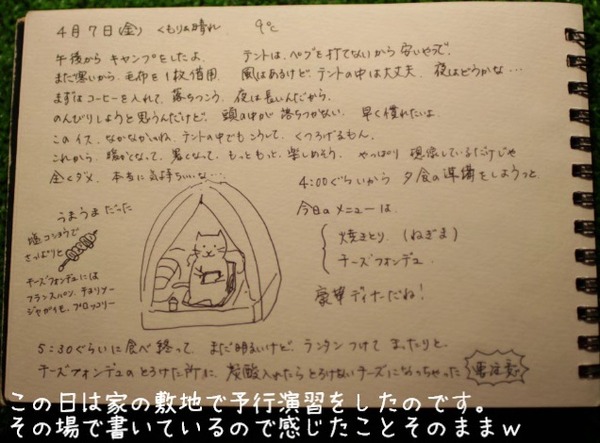 4月7日(金) くもり&晴れ 9℃
午後から キャンプをしたよ. テントは、ペグを打てないから安いやつで.
まだ寒いから. 毛布を1枚借用. 風はあるけど、テントの中は大丈夫. 夜はどうかな…
まずはコーヒーを入れて. 落ちつこう. 夜は長いんだから.
のんびりしようと思うんだけど、頭の中が落ちつかない. 早く慣れたいよ.
このイス、なかなかいいね. テントの中でもこうして、くつろげるもん.
これから、暖かくなって、暑くなって、もっともっと、楽しめそう. やっぱり 想像しているだけじゃ
全くダメ. 本当に気持ちいいな….
4:00ぐらいから 夕食の準備をしようっと.
うまうまだった
塩コショウで
さっぱりと
チーズフォンデュには
フランスパン、チョリソー
ジャガイモ、ブロッコリー
今日のメニューは.
焼きとり. (ねぎま)
チーズフォンデュ.
豪華ディナーだね!
5:30ぐらいに食べ終って. まだ明るいけど. ランタンつけて まったりと.
チーズフォンデュのとろけた所に、炭酸入れたらとろけないチーズになっちゃった 要注意
この日は家の敷地で予行演習をしたのです。
その場で書いているので感じたことそのままw